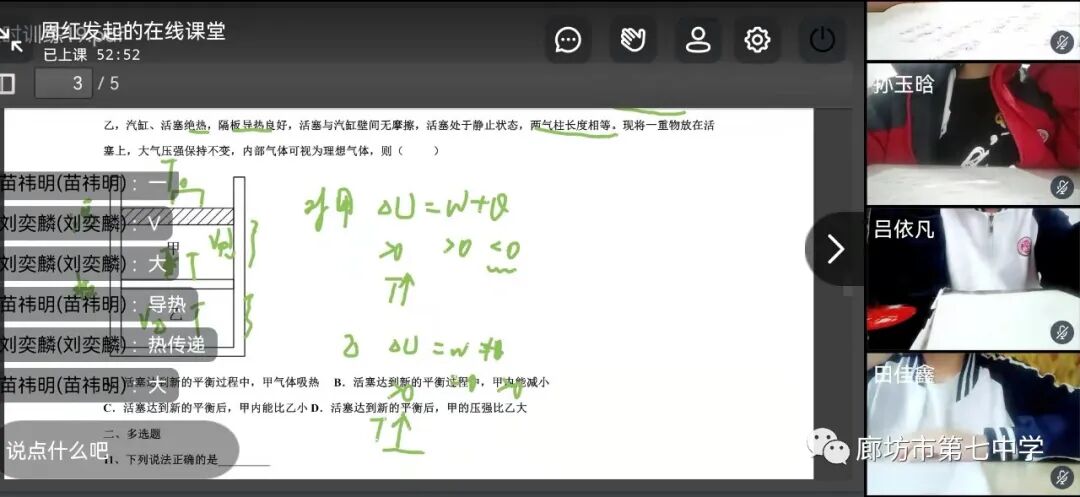 时训练19.pdf
周红发起的在线课堂
已上课 52:52
3 / 5
乙，汽缸、活塞绝热，隔板导热良好，活塞与汽缸壁间无摩擦，活塞处于静止状态，两气柱长度相等。现将一重物放在活
塞上，大气压强保持不变，内部气体可视为理想气体，则（ ）
苗祎明(苗祎明)：一
刘奕麟(刘奕麟)：V
刘奕麟(刘奕麟)：大
苗祎明(苗祎明)：导热
刘奕麟(刘奕麟)：热传递
苗祎明(苗祎明)：大
说点什么吧
甲
乙
T
T
对甲 ΔU=W+Q
>0 >0 <0
T↑
乙 ΔU=W+Q
>0 >0 >0
T↑
活塞达到新的平衡过程中，甲气体吸热 B．活塞达到新的平衡过程中，甲内能减小
C．活塞达到新的平衡后，甲内能比乙小 D．活塞达到新的平衡后，甲的压强比乙大
二、多选题
11、下列说法正确的是
孙玉晗
吕依凡
田佳鑫
廊坊市第七中学